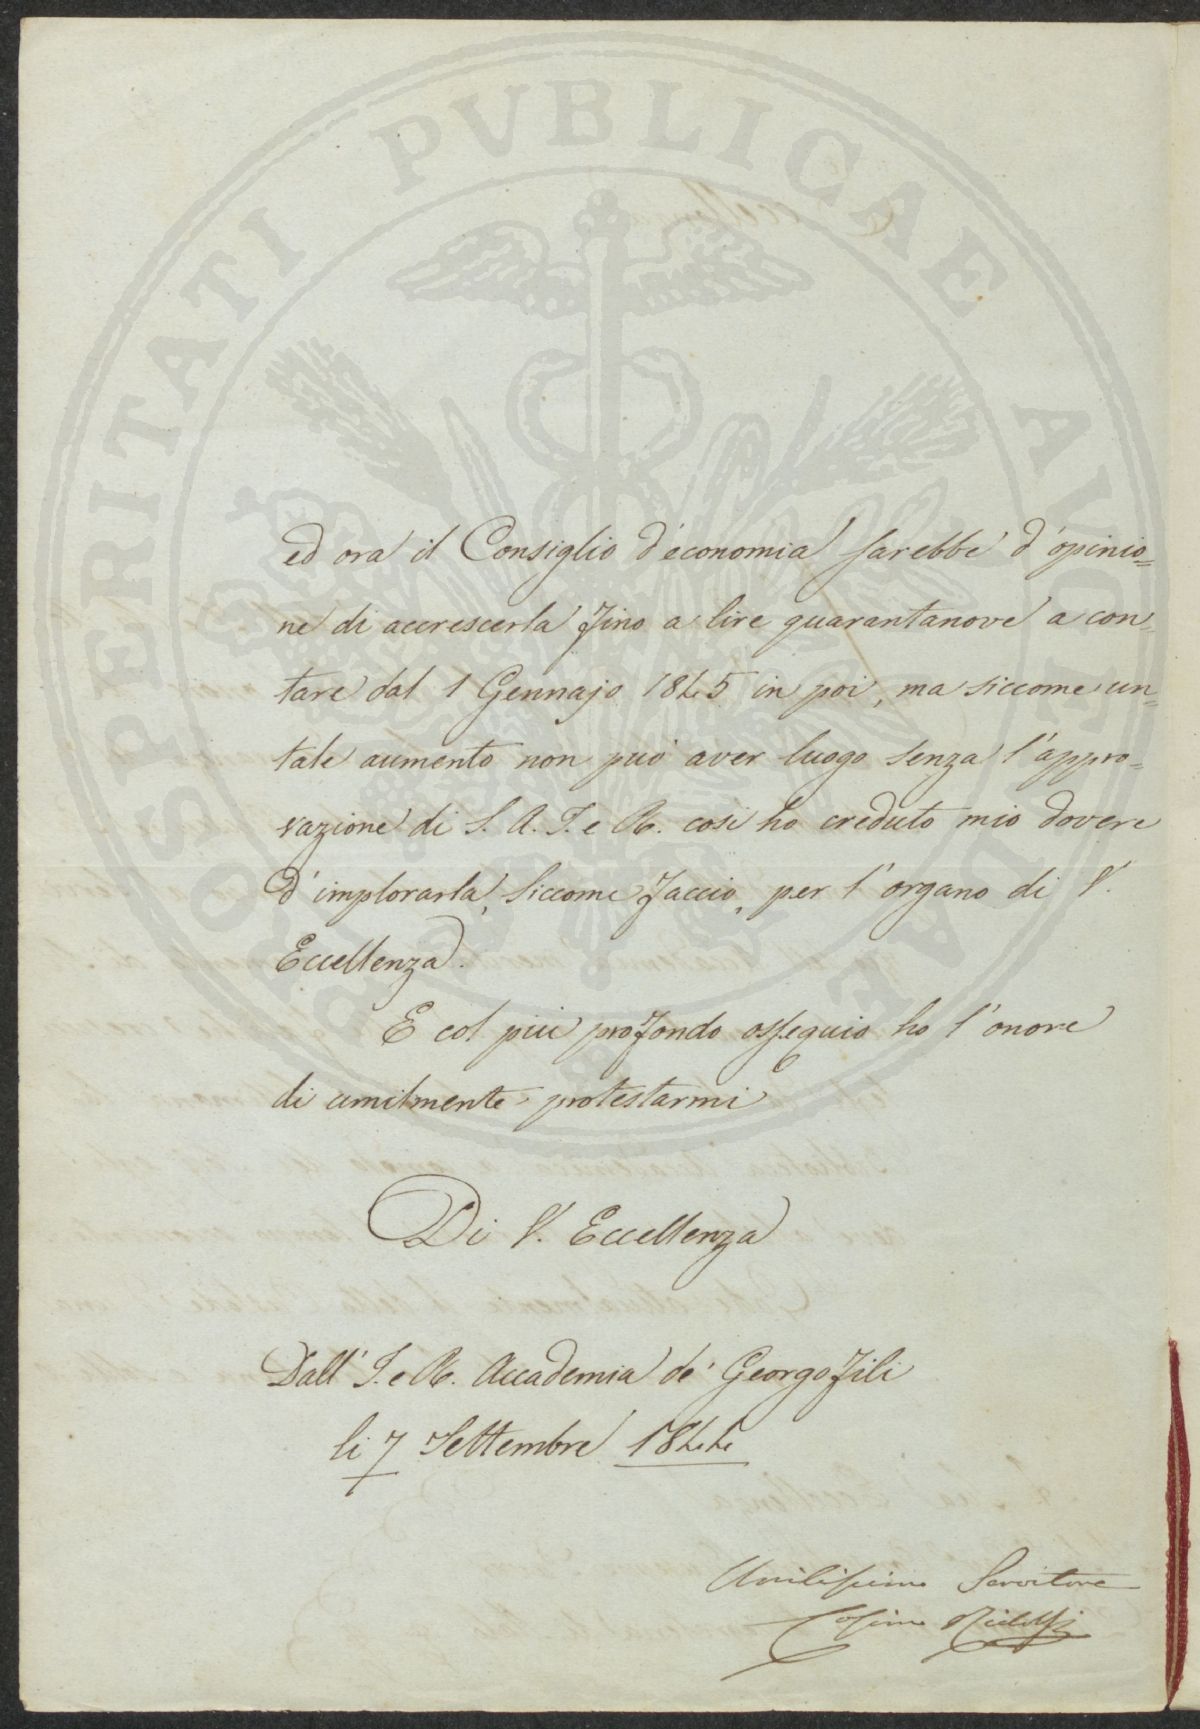 PROSPERITATI PVBLICAE AVGENDAE
ed ora il Consiglio d'economia sarebbe d'opinio=
ne di accrescerla fino a lire quarantanove a con=
tare dal 1 Gennajo 1845 in poi, ma siccome un=
tale aumento non può aver luogo senza l'appro=
vazione di S. A. I. e R. così ho creduto mio dovere
d'implorarla, siccome faccio, per l'organo di V.
Eccellenza.
E col più profondo ossequio ho l'onore
di umilmente protestarmi
Di V. Eccellenza
Dall' I. e R. Accademia de' Georgofili
li 7 Settembre 1844
Umilissimo Servitore
Cosimo Ridolfi